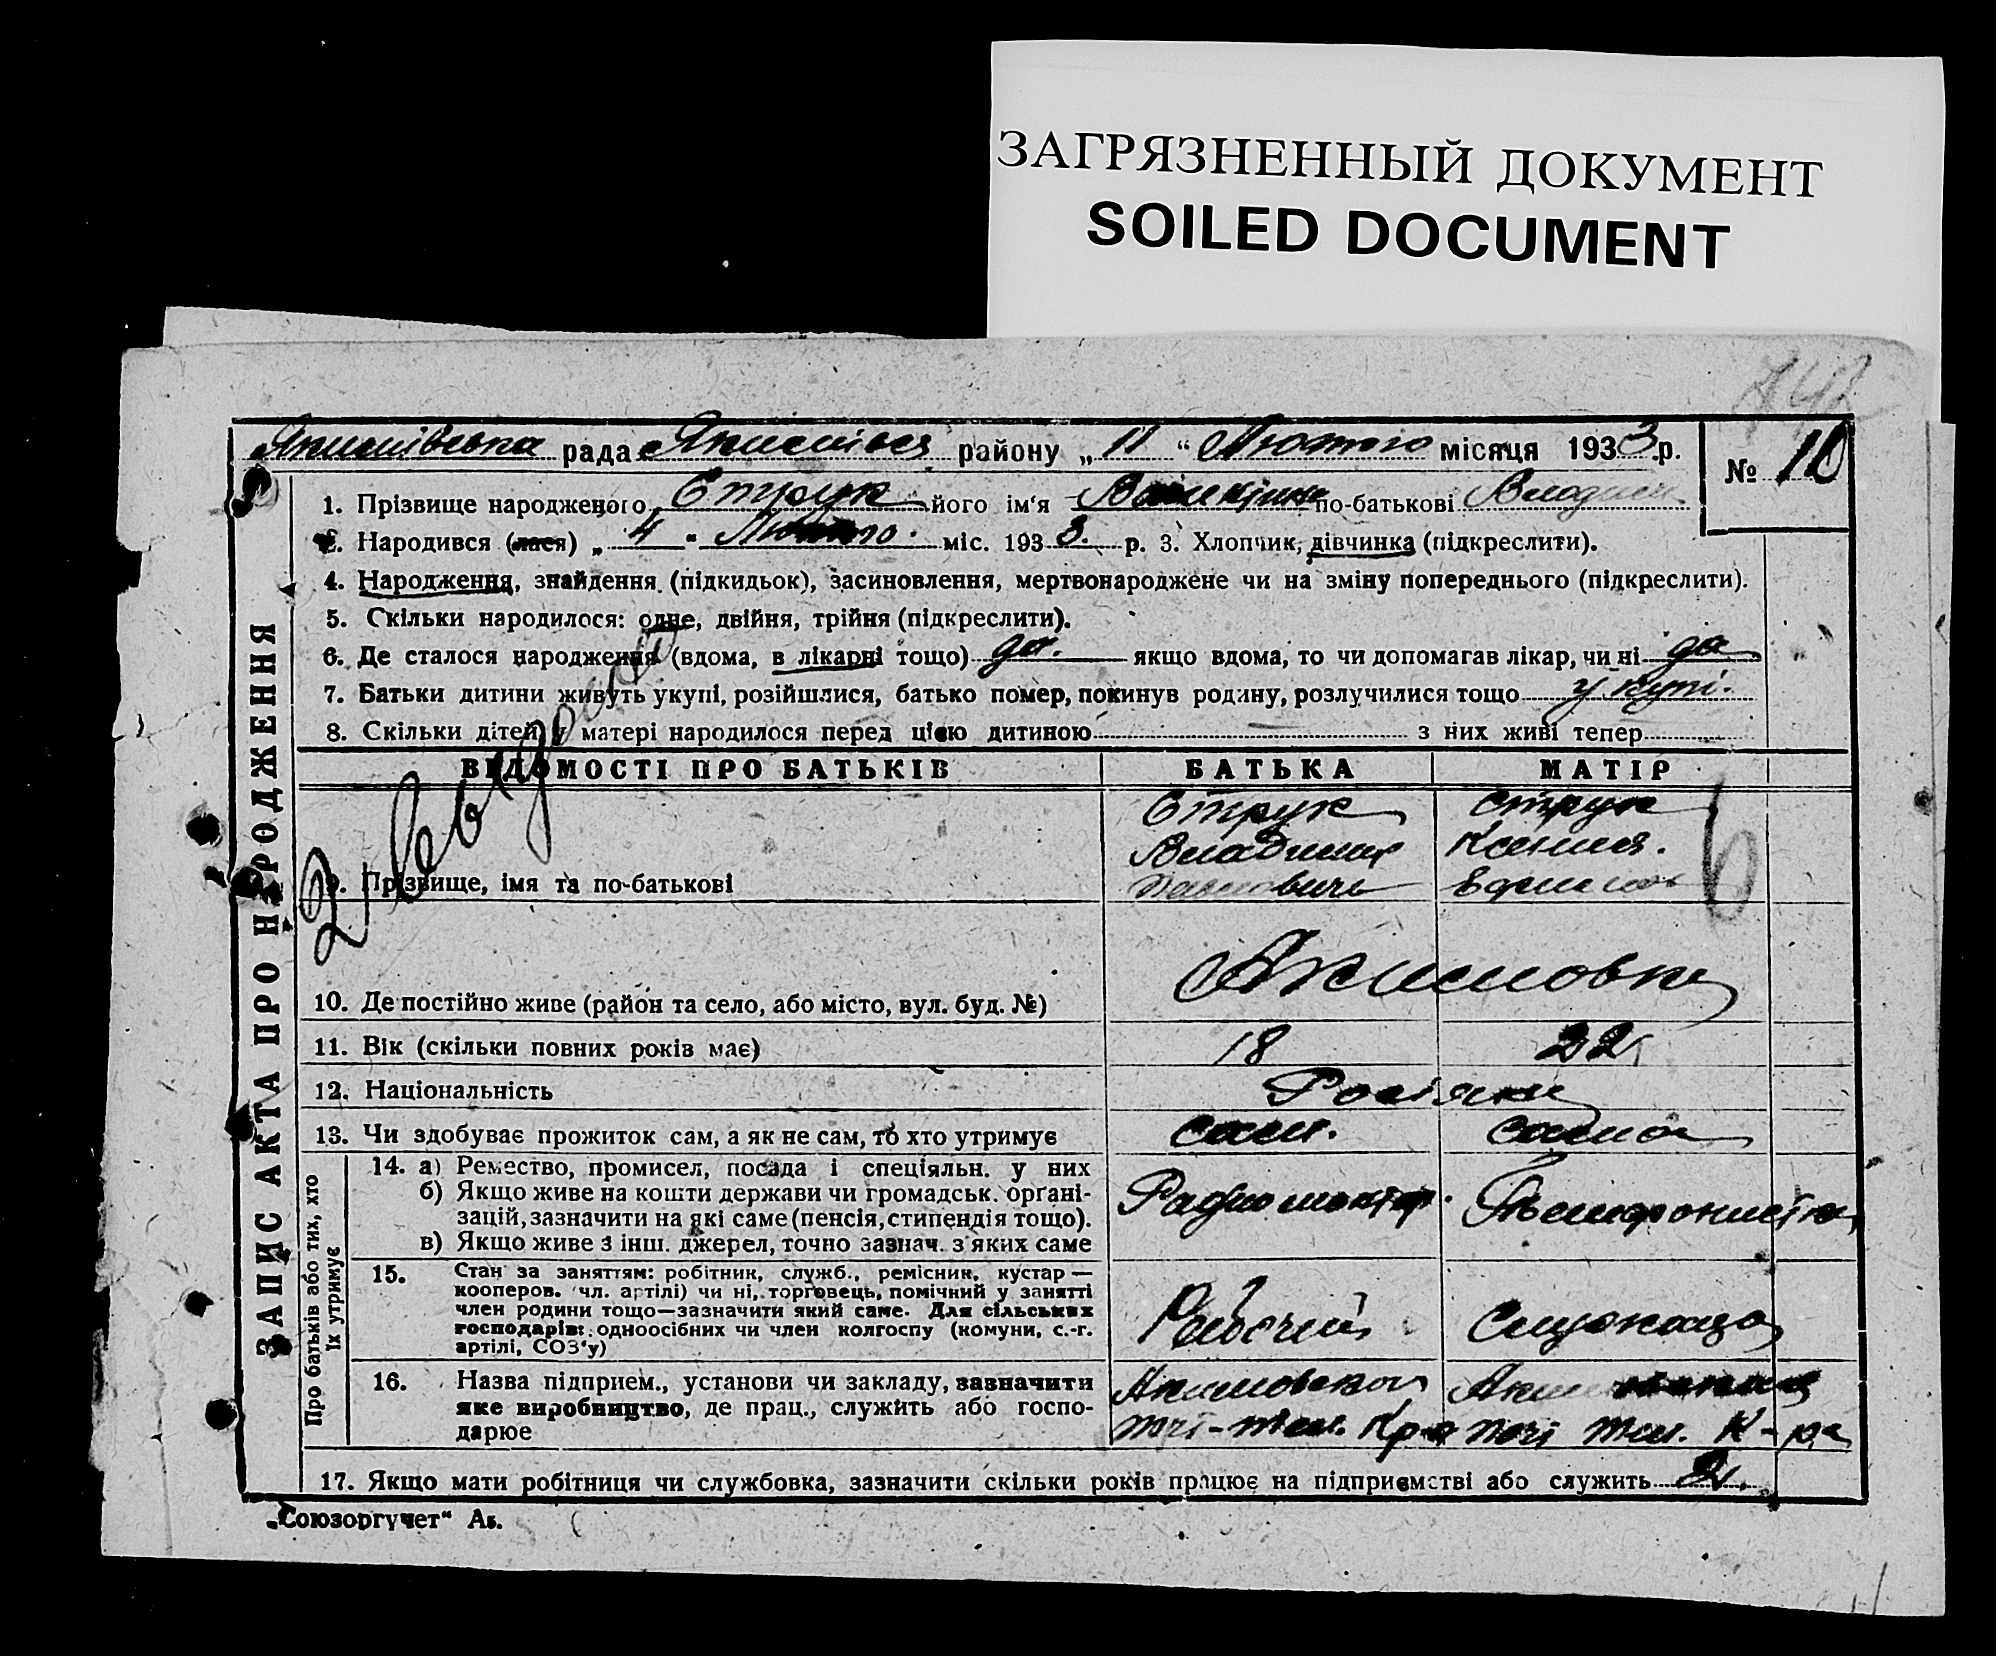 ЗАГРЯЗНЕННЫЙ ДОКУМЕНТ
SOILED DOCUMENT
Якимівська рада Якимівка району „ 11 “ Лютого місяця 1933 р.
№ 10
1. Прізвище народженого Струк його ім'я по-батькові Володим
2. Народився (лася) „ 4 “ Лютого міс. 1933. р. 3. Хлопчик, дівчинка (підкреслити).
4. Народження, знайдення (підкидьок), засиновлення, мертвонароджене чи на зміну попереднього (підкреслити).
5. Скільки народилося: одне, двійня, трійня (підкреслити).
6. Де сталося народження (вдома, в лікарні тощо) да. якщо вдома, то чи допомагав лікар, чи ні да
7. Батьки дитини живуть укупі, розійшлися, батько помер, покинув родину, розлучилися тощо у купі.
8. Скільки дітей у матері народилося перед цією дитиною — з них живі тепер
ЗАПИС АКТА ПРО НАРОДЖЕННЯ
ВІДОМОСТІ ПРО БАТЬКІВ БАТЬКА МАТІР
9. Прізвище, імя та по-батькові
Струк Струк
Владимир Ксения.
10. Де постійно живе (район та село, або місто, вул. буд. №) Акимовка
11. Вік (скільки повних років має) 18 22
12. Національність Росіяни
13. Чи здобуває прожиток сам, а як не сам, то хто утримує сам. сама
Про батьків або тих, хто їх утримує
14. а) Ремество, промисел, посада і спеціяльн. у них
б) Якщо живе на кошти держави чи громадськ. органі-
зацій, зазначити на які саме (пенсія, стипендія тощо).
в) Якщо живе з інш. джерел, точно зазнач. з яких саме
Радиомонтер. Телефонистка
15. Стан за заняттям: робітник, служб., ремісник, кустар —
кооперов. чл. артілі) чи ні, торговець, помічний у занятті
член родини тощо—зазначити який саме. Для сільських
господарів: одноосібних чи член колгоспу (комуни, с.-г.
артілі, СОЗ'у)
Рабочий Служаща
16. Назва підприєм., установи чи закладу, зазначити
яке виробництво, де прац., служить або госпо-
дарюе
Акимовской
17. Якщо мати робітниця чи службовка, зазначити скільки років працює на підприємстві або служить 2.
„Союзоргучет“ Аз.